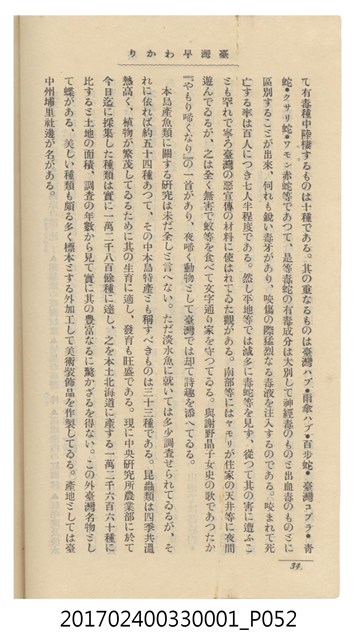 臺灣早わかり
て有毒種中陸棲するものは十種である。其の重なるものは臺灣ハブ・雨傘ハブ・百步蛇・臺灣コブラ・青
蛇・クサリ蛇・ワモン赤蛇等であつて、是等毒蛇の有毒成分は大別して神經毒のものと出血毒のものとに
區別することが出來、何れも銳い毒牙があり、咬傷の際猛烈なる毒液を注入するのである。咬まれて死
亡する率は百人につき七人半程度である。然し平地等では減多に毒蛇等を見ず、從つて其の害に遭ふこ
とも罕れで寧ろ臺灣の惡宣傳の材料に使はれてゐた觀がある。南部等にはヤモリが住家の天井等に夜間
遊んでゐるが、之は全く無害で蚊等を食べて文字通り家を守つてゐる。與謝野晶子女史の歌であつたか
『やもり啼くなり』の一首があり、夜啼く動物として臺灣では却て詩趣を添へてゐる。
本島產魚類に關する研究は未だ全しと言へない。ただ淡水魚に就いては多少調査せられてゐるが、そ
れに依れば約五十四種あつて、その中本島特產とも稱すべきものは三十三種である。昆蟲類は四季共溫
熱高く、植物が繁茂してゐるために其の生育に適し、發育も旺盛である。現に中央研究所農業部に於て
今日迄に採集した種類は實に一萬二千八百餘種に達し、之を本土北海道に產する一萬二千六百六十種に
比すると土地の面積、調査の年數から見て實に其の豐富なるに驚かざるを得ない。この外臺灣名物とし
て蝶がある、美しい種類も頗る多く標本とする外加工して美術裝飾品を作製してゐる。產地としては臺
中州埔里社邊が名がある。
39.
201702400330001_P052